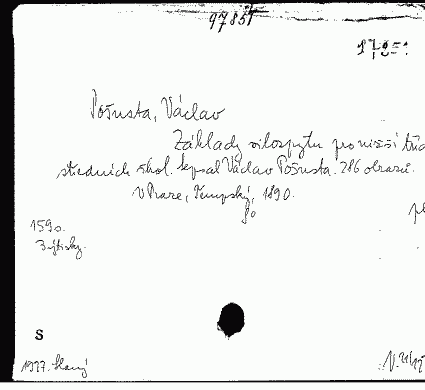 97851
Pošusta, Václav
Základy silozpytu pro nižší tříd
středních škol. Sepsal Václav Pošusta. 286 obrazů.
V Praze, Tempský, 1890.
8o
159 s.
3 výtisky.
S
1977. Slaný